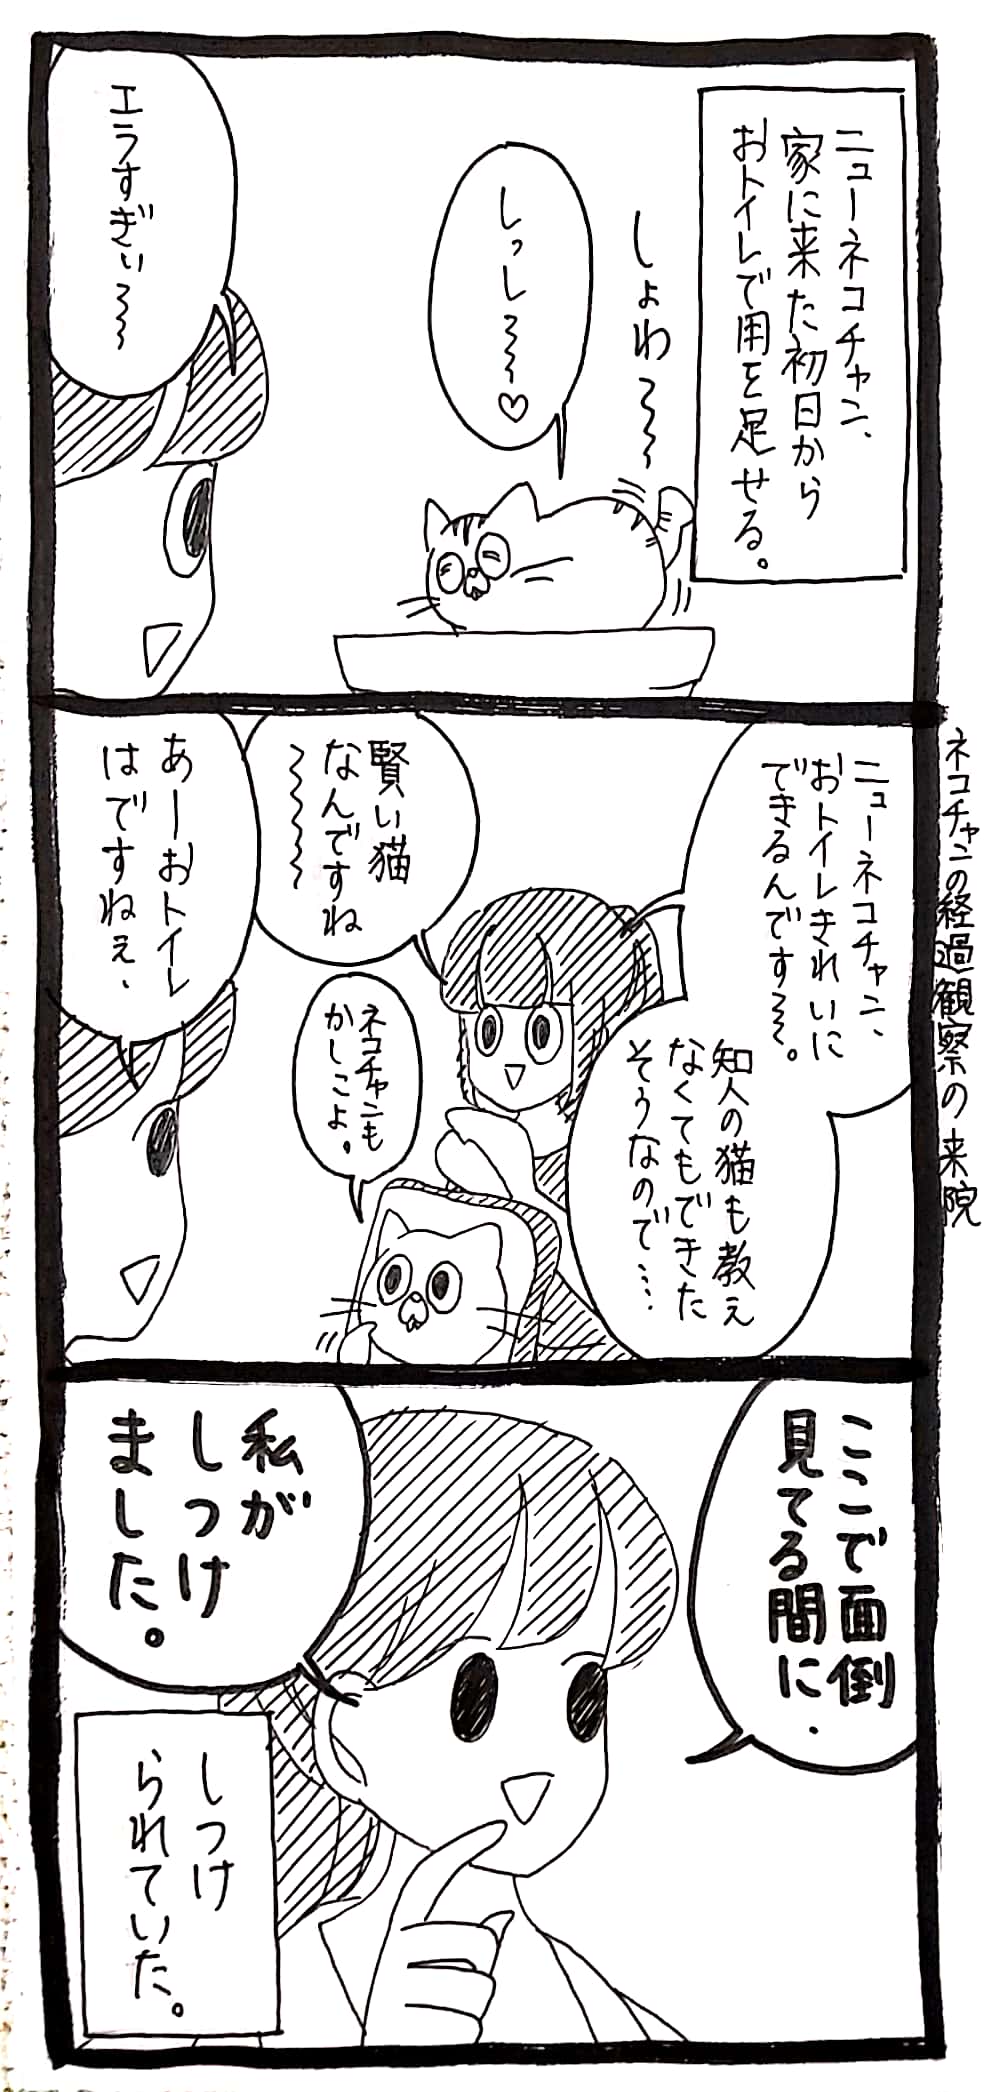 ニューネコチャン、
家に来た初日から
おトイレで用を足せる。
しょわ～～
しっし～～♡
エラすぎぃ～～
ネコチャンの経過観察の来院
ニューネコチャン、
おトイレきれいに
できるんです～～。
知人の猫も教え
なくてもできた
そうなので…
賢い猫
なんですね
～～～～
ネコチャンも
かしこよ。
あーおトイレ
はですねぇ、
ここで面倒
見てる間に、
私が
しつけ
ました。
しつけ
られていた。